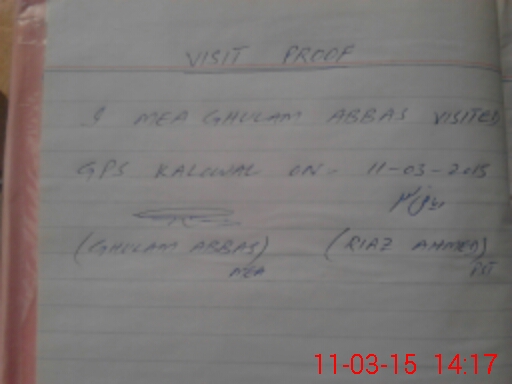 VISIT PROOF
I MEA GHULAM ABBAS VISITED
GPS KALUWAL ON - 11-03-2015
(GHULAM ABBAS) (RIAZ AHMED)
MEA PST
11-03-15 14:17